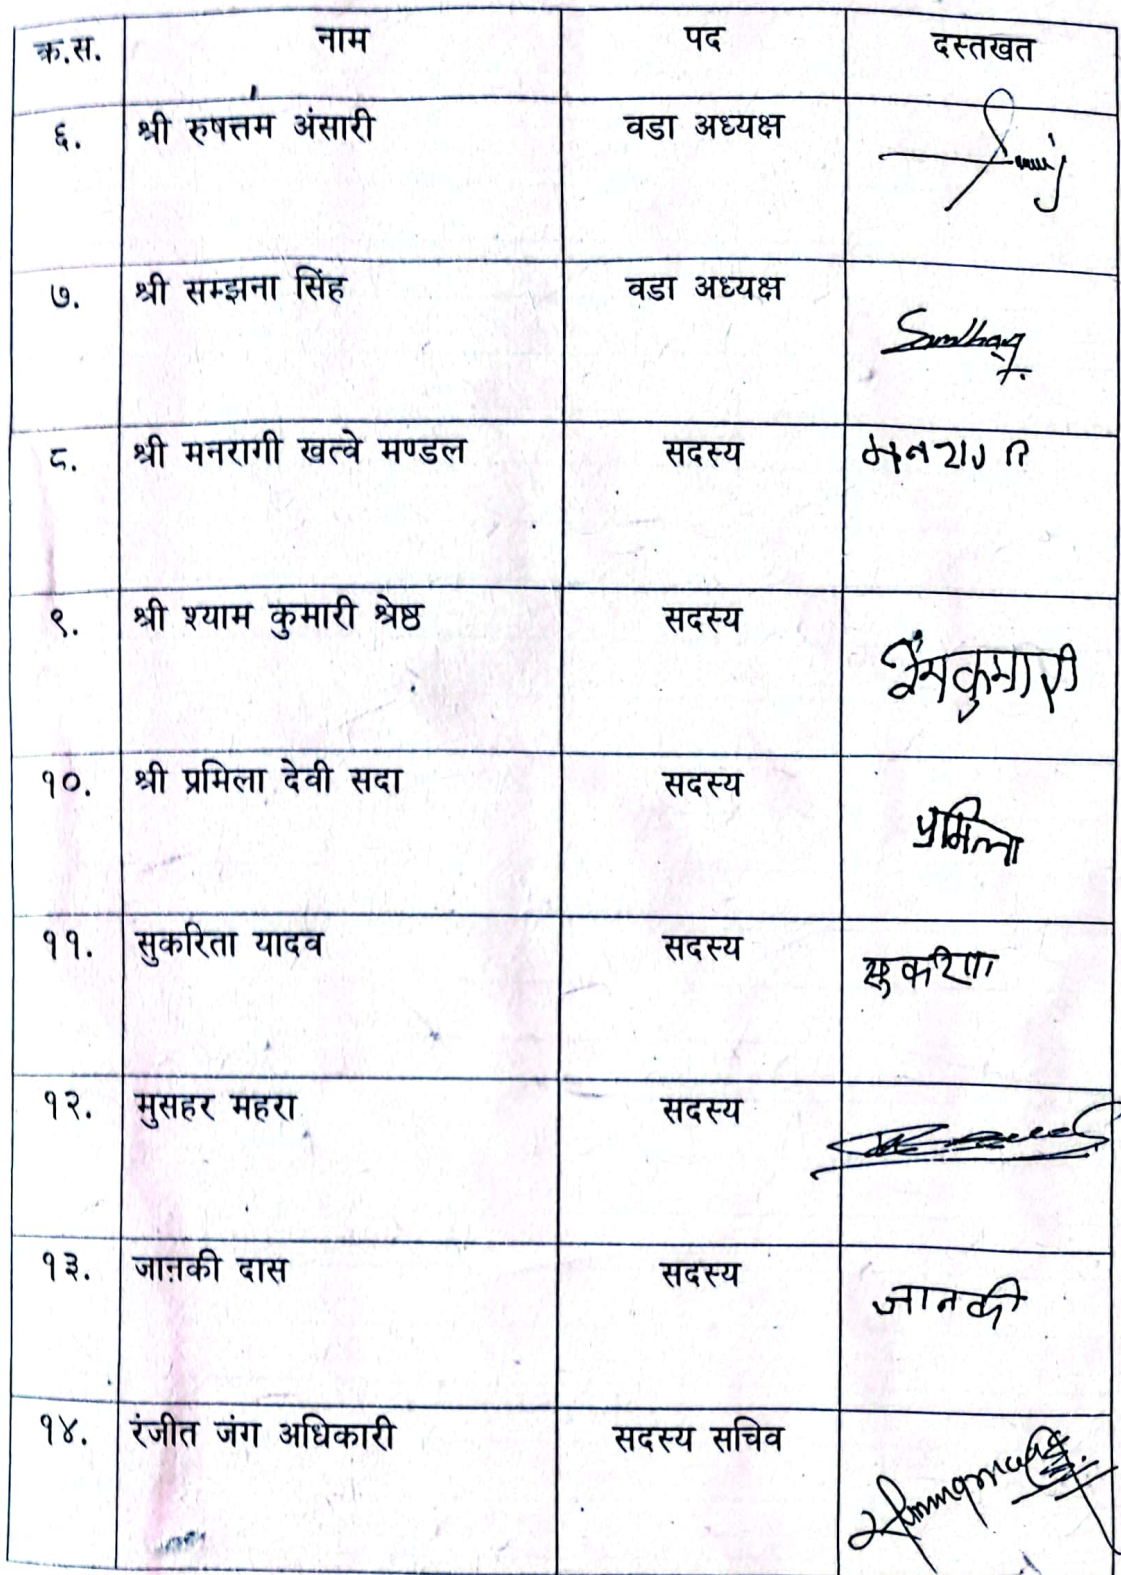 क्र.स. नाम पद दस्तखत
६. श्री रुषत्तम अंसारी वडा अध्यक्ष
७. श्री सम्झना सिंह वडा अध्यक्ष
८. श्री मनरागी खत्वे मण्डल सदस्य मनरागी
९. श्री श्याम कुमारी श्रेष्ठ सदस्य
१०. श्री प्रमिला देवी सदा सदस्य
प्रमिला
११. सुकरिता यादव सदस्य
१२. मुसहर महरा सदस्य
१३. जानकी दास सदस्य
जानकी
१४. रंजीत जंग अधिकारी सदस्य सचिव